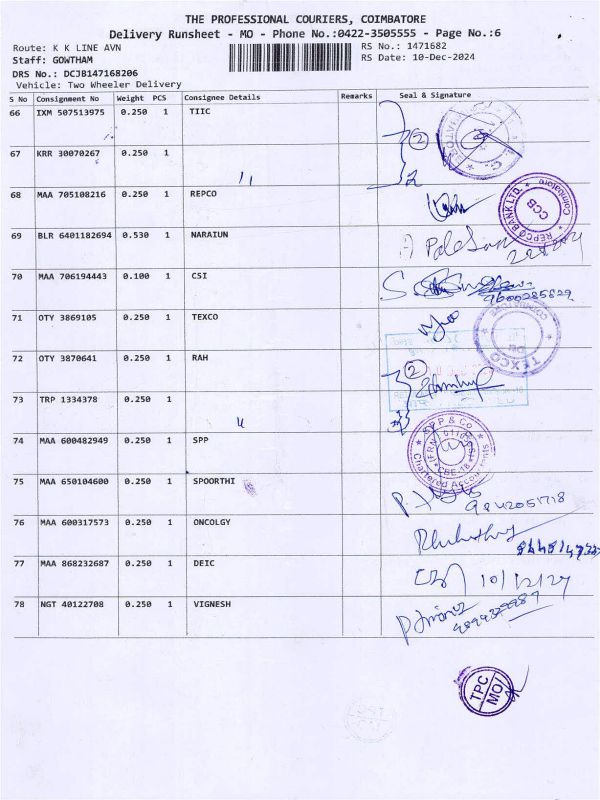 THE PROFESSIONAL COURIERS, COIMBATORE
Delivery Runsheet - MO - Phone No.:0422-3505555 - Page No.:6
Route: K K LINE AVN
RS No.: 1471682
Staff: GOWTHAM
RS Date: 10-Dec-2024
DRS No.: DCJB147168206
Vehicle: Two Wheeler Delivery
S No Consignment No Weight PCS Consignee Details Remarks Seal & Signature
66 IXM 507513975 0.250 1 TIIC
2
67 KRR 30070267 0.250 1 "
2
68 MAA 705108216 0.250 1 REPCO
REPCO BANK LTD. Coimbatore CCB
69 BLR 6401182694 0.530 1 NARAIUN
70 MAA 706194443 0.100 1 CSI
9600285829
71 OTY 3869105 0.250 1 TEXCO
TEXCO COIMBATORE
72 OTY 3870641 0.250 1 RAH
2
73 TRP 1334378 0.250 1 "
74 MAA 600482949 0.250 1 SPP
SPP & Co Chartered Accountants CBE-18
75 MAA 650104600 0.250 1 SPOORTHI
9842051718
76 MAA 600317573 0.250 1 ONCOLGY
77 MAA 868232687 0.250 1 DEIC
10/12/24
78 NGT 40122708 0.250 1 VIGNESH
TPC MO/